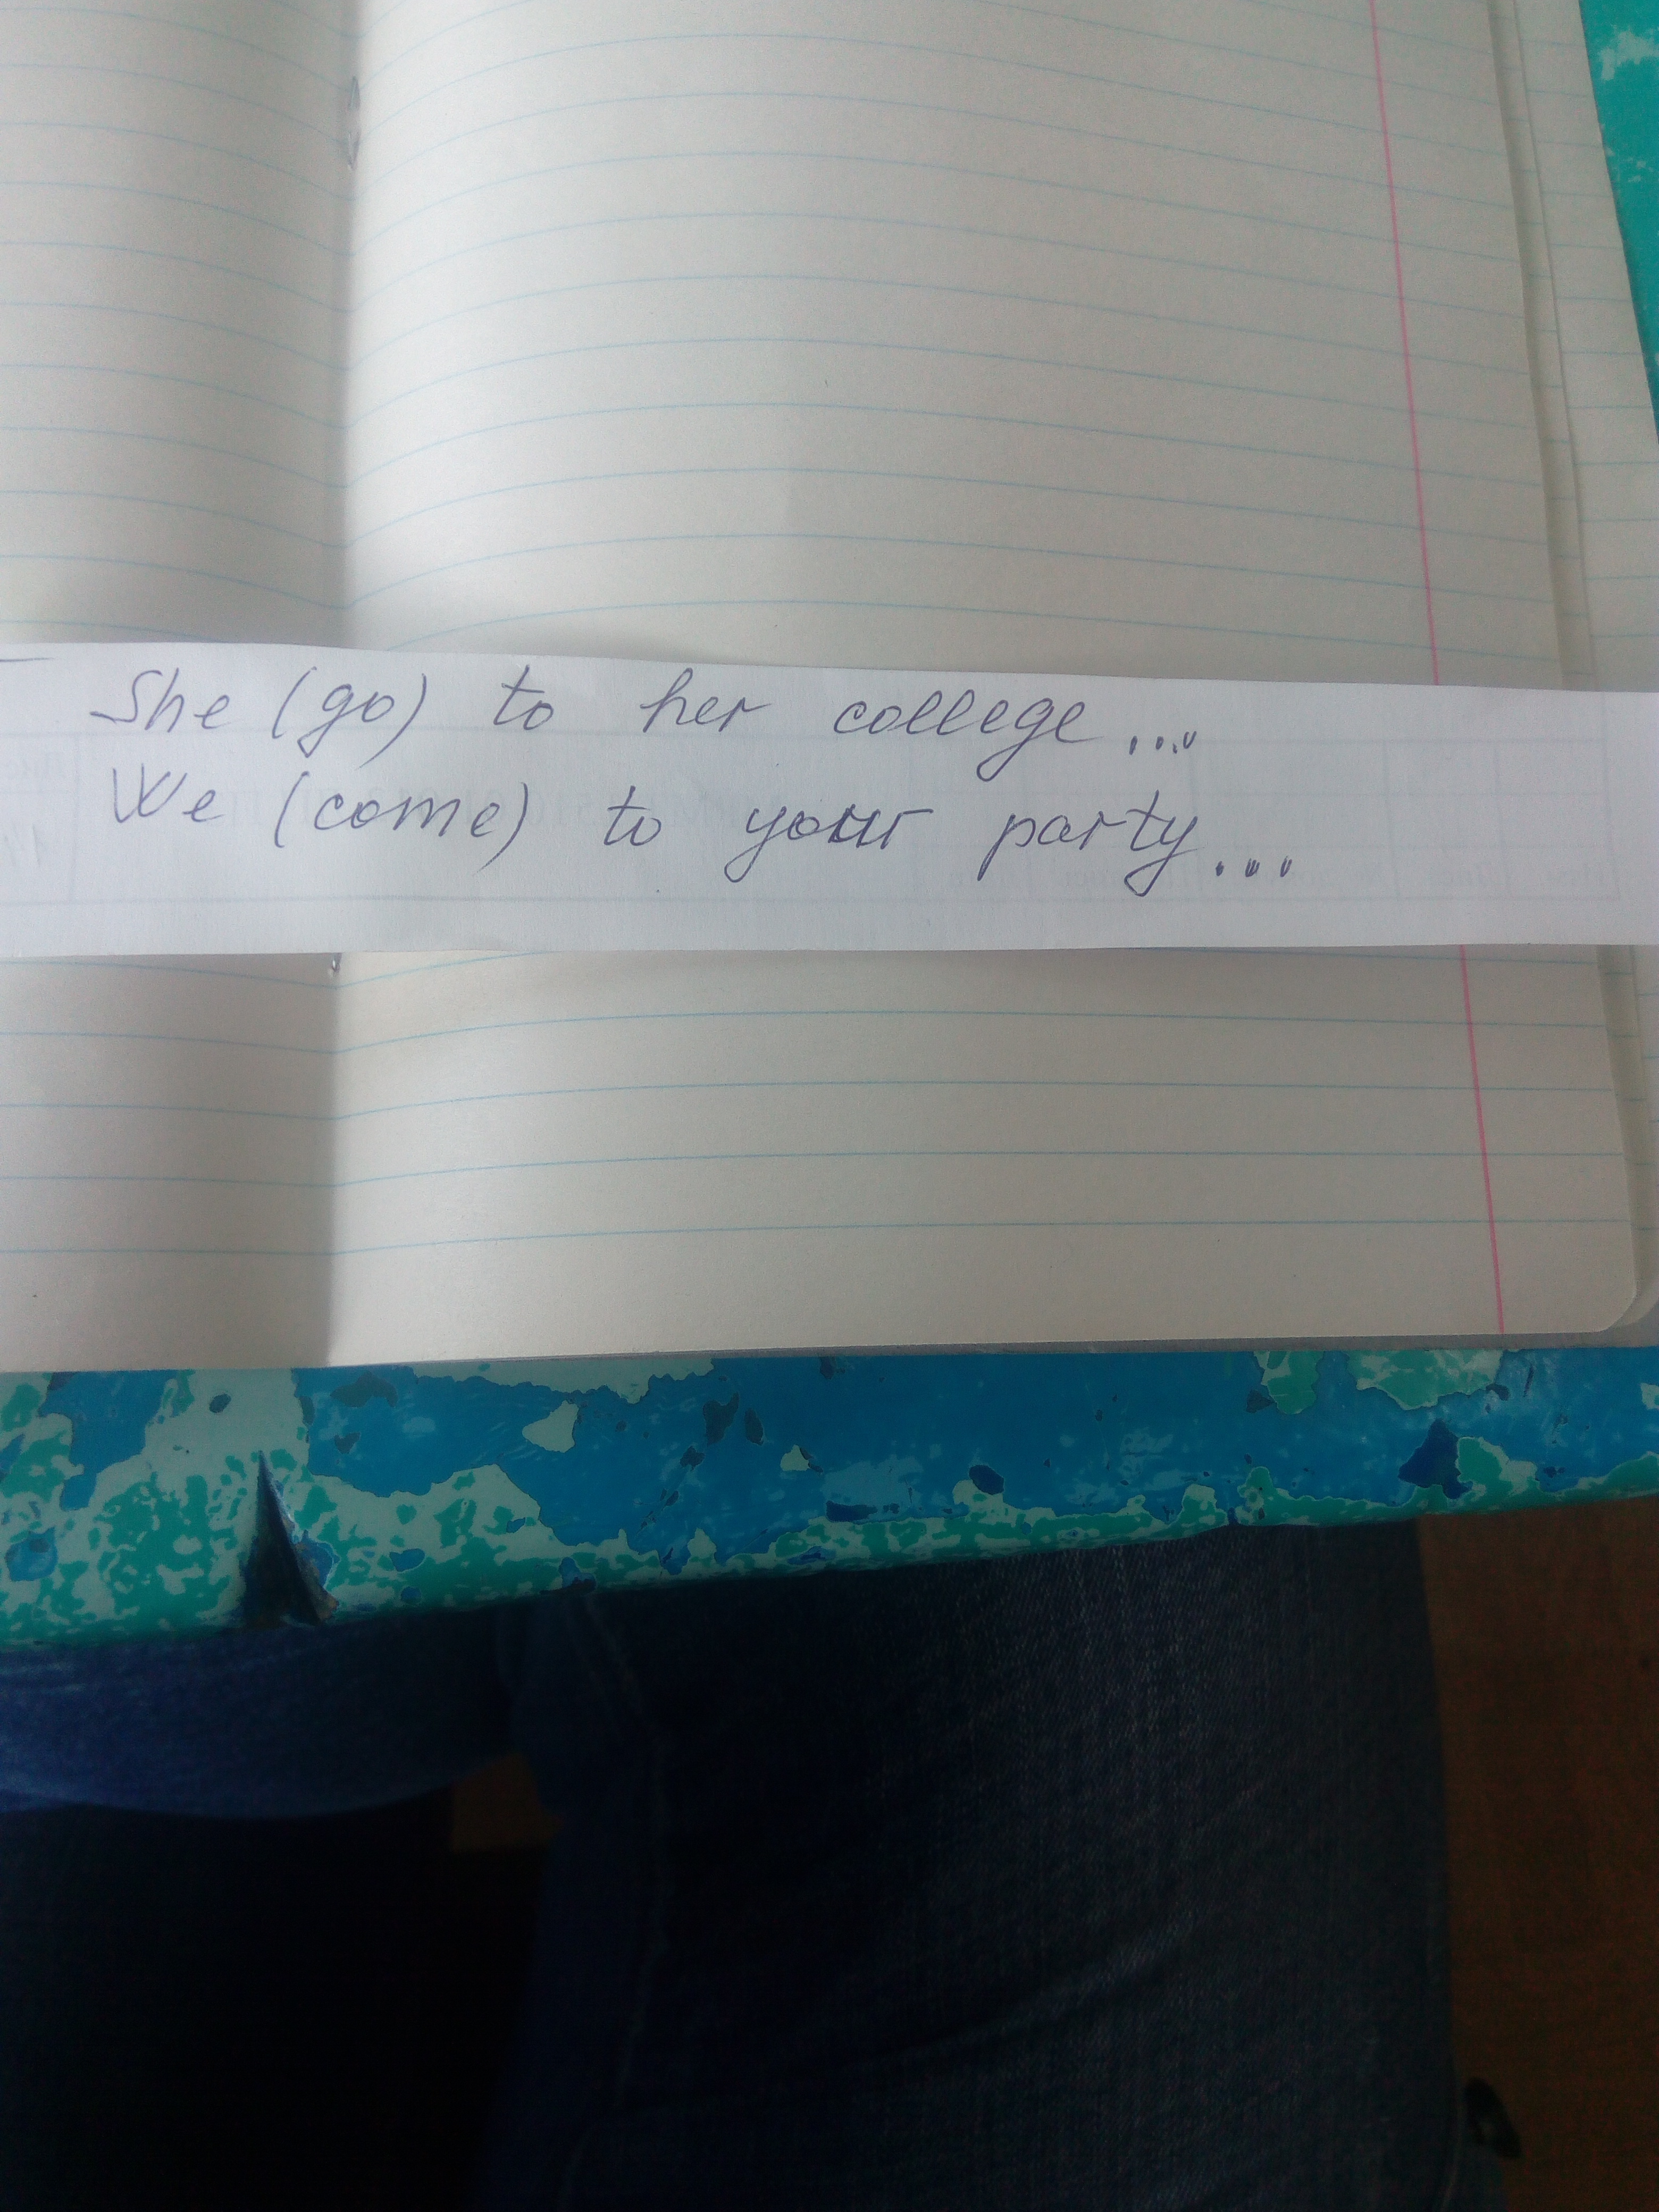 She (go) to her college...
We (come) to your party...